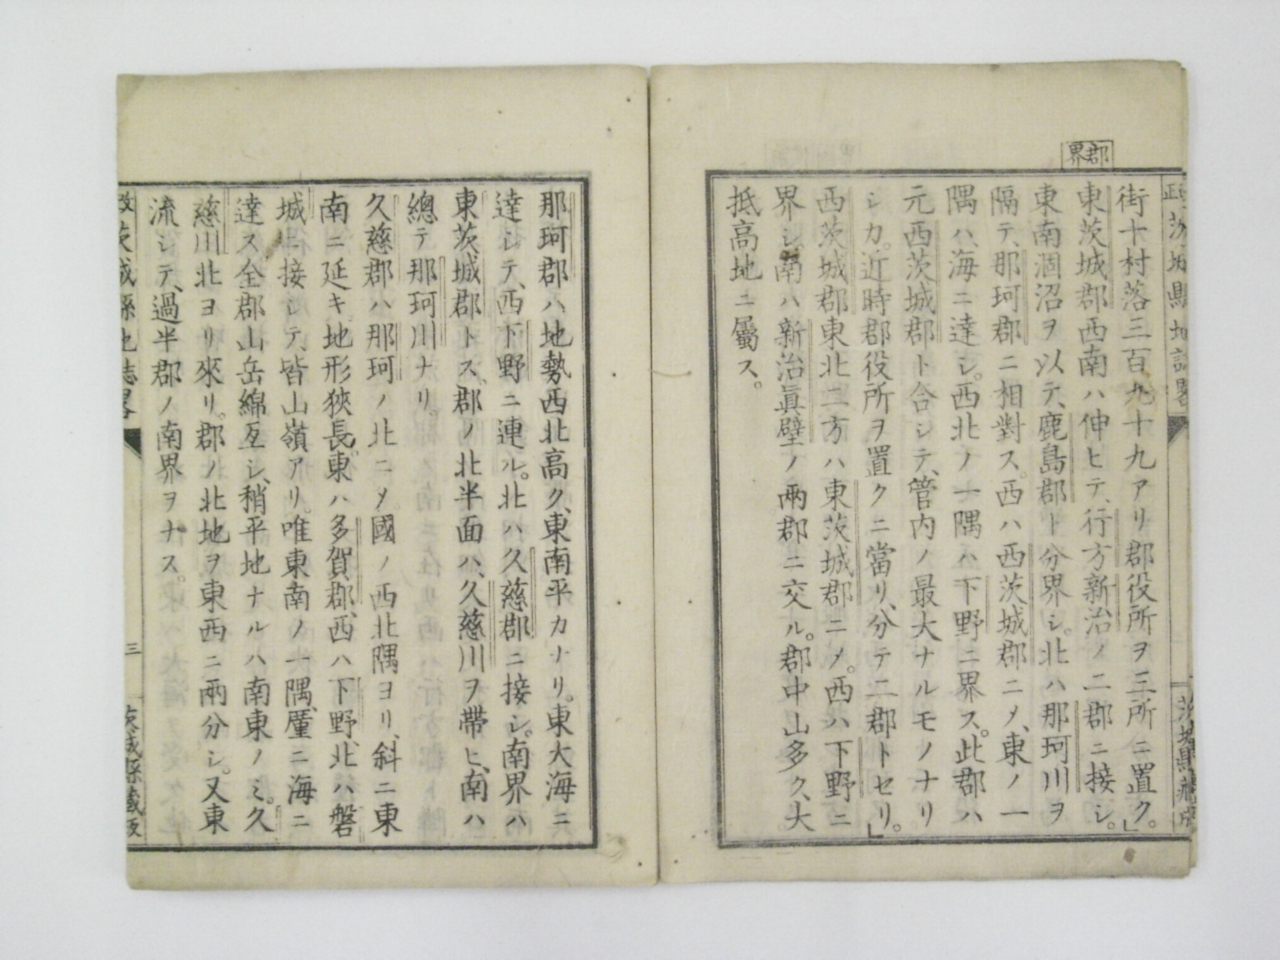 郡界
街十村落三百九十九アリ郡役所ヲ三所ニ置ク。」
東茨城郡西南ハ伸ヒテ、行方新治ノ二郡ニ接シ。
東南涸沼ヲ以テ、鹿島郡ト分界シ。北ハ那珂川ヲ
隔テ、那珂郡ニ相對ス。西ハ西茨城郡ニメ、東ノ一
隅ハ、海ニ達シ。西北ノ一隅ハ下野ニ界ス。此郡ハ
元西茨城郡ト合シテ、管内ノ最大ナルモノナリ
シカ。近時郡役所ヲ置クニ當リ、分テ二郡トセリ。」
西茨城郡東北二方ハ東茨城郡ニメ。西ハ下野ニ
界シ。南ハ新治眞壁ノ兩郡ニ交ル。郡中山多ク、大
抵高地ニ屬ス。
那珂郡ハ、地勢西北高ク、東南平カナリ。東大海ニ
達シテ、西下野ニ連ル。北ハ久慈郡ニ接シ。南界ハ
東茨城郡トス、郡ノ北半面ハ、久慈川ヲ帶ヒ、南ハ
總テ那珂川ナリ。
久慈郡ハ那珂ノ北ニメ。國ノ西北隅ヨリ、斜ニ東
南ニ延キ地形狹長。東ハ多賀郡、西ハ下野、北ハ磐
城ニ接シテ、皆山嶺アリ。唯東南ノ一隅、厪ニ海ニ
達ス全郡山岳綿亙シ、稍平地ナルハ南東ノミ。久
慈川北ヨリ來リ。郡ノ北地ヲ東西ニ兩分シ。又東
流シテ、過半郡ノ南界ヲナス。
改茨城縣地誌畧
三
茨城縣藏版